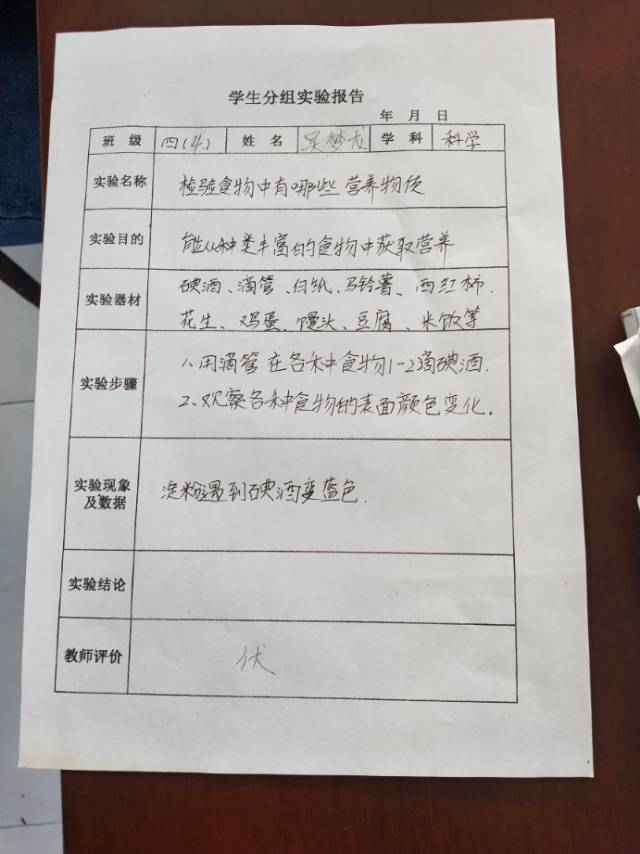 学生分组实验报告
年 月 日
班 级 四(4.) 姓 名 吴梦龙 学 科 科学
实验名称 检验食物中有哪些营养物质
实验目的 能从种类丰富的食物中获取营养
实验器材 碘酒、滴管、白纸、马铃薯、西红柿.
花生、鸡蛋、馒头、豆腐、米饭等
实验步骤 1、用滴管在各种食物1-2滴碘酒.
2、观察各种食物的表面颜色变化。
实验现象及数据 淀粉遇到碘酒变蓝色.
实验结论
教师评价 优